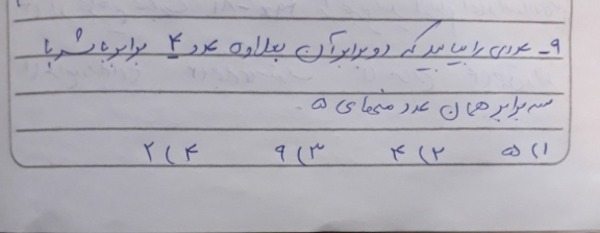 ۹_ عددی را بیابید که دو برابر آن بعلاوه عدد ۴ برابر باشد با
سه برابر همان عدد منهای ۵.
۱) ۵ ۲) ۴ ۳) ۹ ۴) ۲